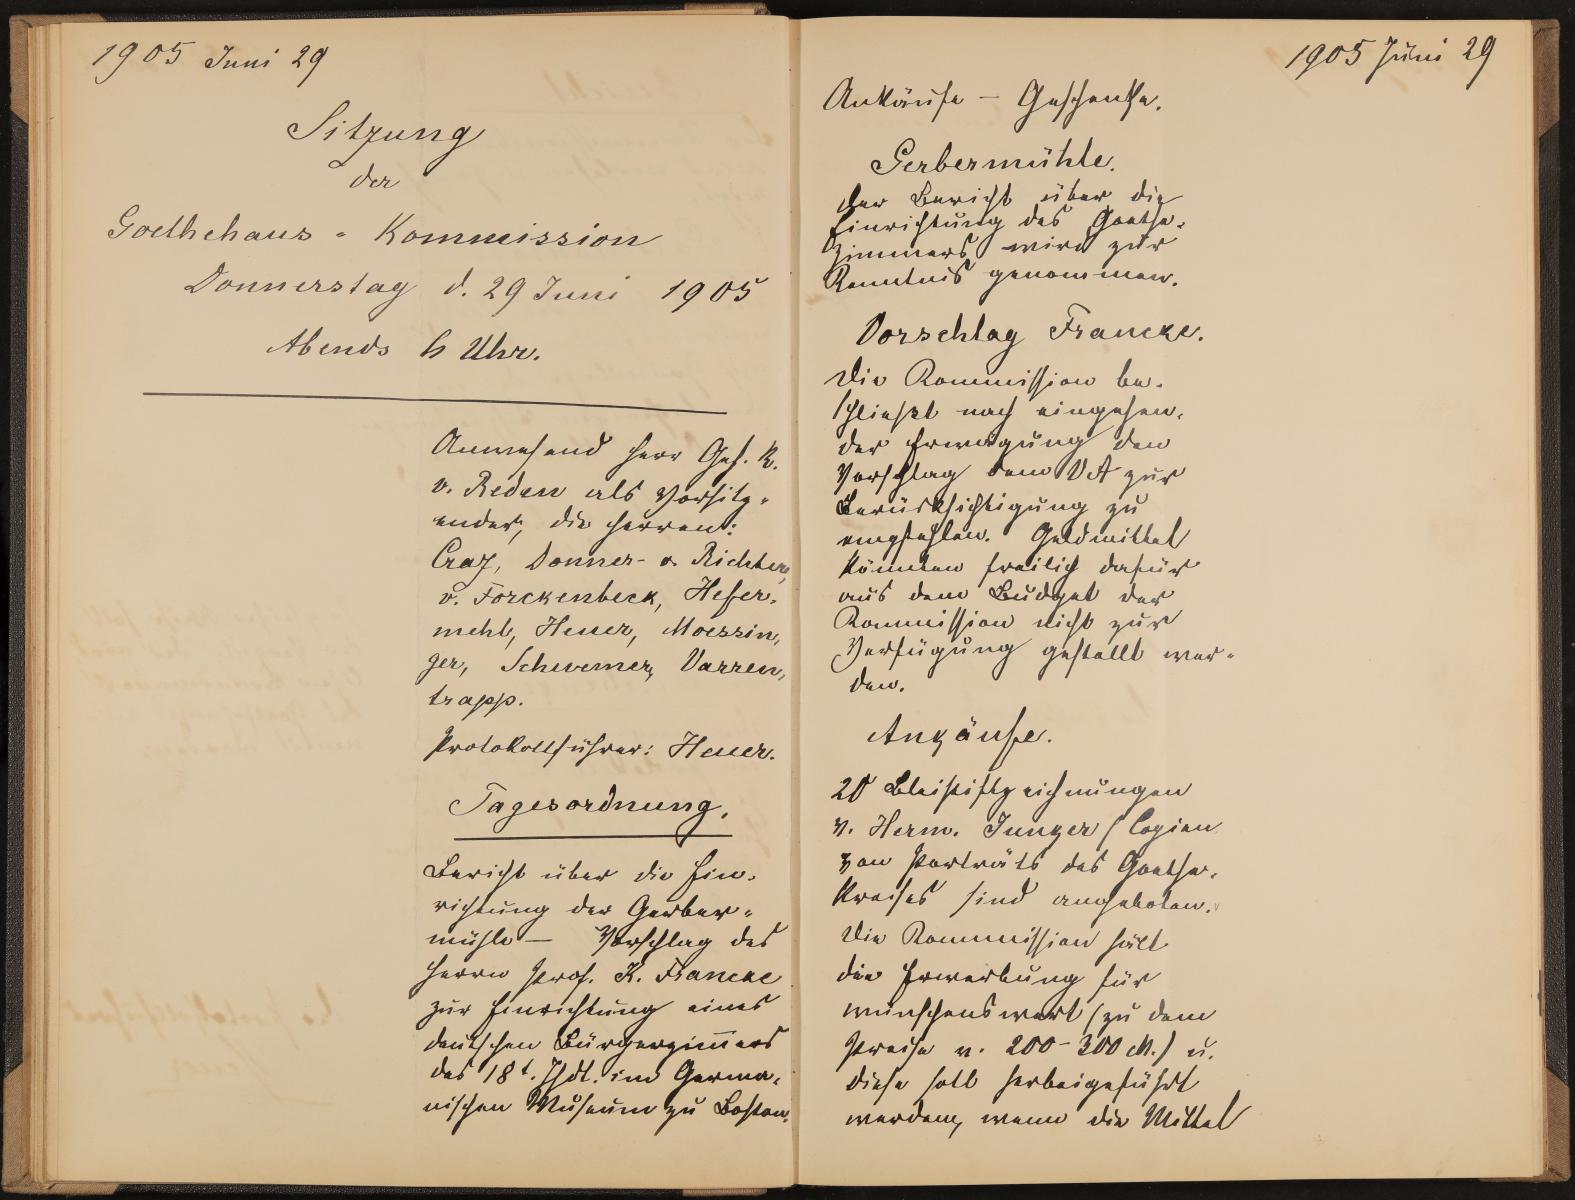 1905 Juni 29
Sitzung
der
Goethehaus-Kommission
Donnerstag d. 29 Juni 1905
Abends 6 Uhr.
Anwesend Herr Geh. R.
v. Reden als Vorsitz-
ender, die Herren:
Donner- v. Richter,
v. Forckenbeck, Hefer-
mehl, Heuer, Moessin-
ger, Schwemer, Varren-
trapp.
Protokollführer: Heuer.
Tagesordnung.
Bericht über die Ein-
richtung der Gerber-
mühle — Vorschlag des
Herrn Prof. K. Francke
zur Einrichtung eines
deutschen Bürgerzim̅ers
des 18t. Jhdt. im Germa-
nischen Museum zu Boston.
1905 Juni 29
Ankäufe — Geschenke.
Gerbermühle.
Der Bericht über die
Einrichtung des Goethe-
zimmers wird zur
Kenntnis genommen.
Vorschlag Francke.
Die Kommission be-
schließt nach eingehen-
der Erwägung den
Vorschlag dem VA zur
Berücksichtigung zu
empfehlen. Geldmittel
könnten freilich dafür
aus dem Budget der
Kommission nicht zur
Verfügung gestellt wer-
den.
Ankäufe.
20 Bleistiftzeichnungen
v. Herm. Junker (Copien
von Porträts des Goethe-
kreises sind angeboten.
Die Kommission hält
die Erwerbung für
wünschenswert (zu dem
Preise v. 200-300 M.) u.
diese soll herbeigeführt
werden, wenn die Mittel